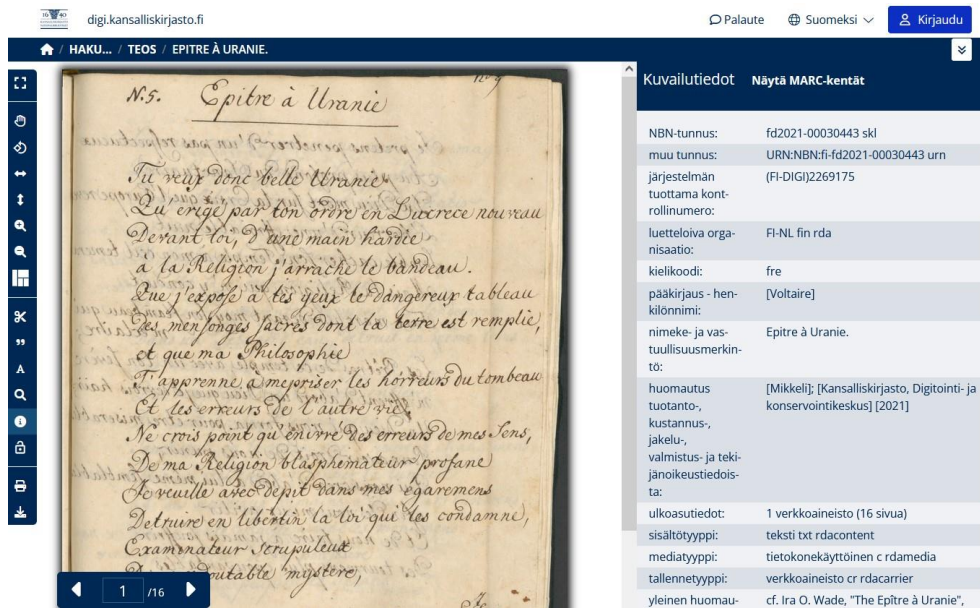 16 40
digi.kansalliskirjasto.fi
Palaute
Suomeksi
Kirjaudu
/ HAKU... / TEOS / EPITRE À URANIE.
N.5. Epitre à Uranie
Tu veux donc belle Uranie,
Qu'erigé par ton ordre en Lucrece nouveau
Devant toi, d'une main hardie
a la Religion j'arrache le bandeau.
Que j'expose a tes yeux le dangereux tableau
Des mensonges sacrés dont la terre est remplie,
et que ma Philosophie
T'apprenne a mepriser les horreurs du tombeau
Et les erreurs de l'autre vie.
Ne crois point qu'enivré des erreurs de mes Sens,
De ma Religion blasphemateur profane
Je veuille avec depit dans mes egaremens
Detruire en libertin la loi qui les condamne,
Examinateur scrupuleux
mystere,
Je
1 /16
Kuvailutiedot Näytä MARC-kentät
NBN-tunnus: fd2021-00030443 skl
muu tunnus: URN:NBN:fi-fd2021-00030443 urn
järjestelmän (FI-DIGI)2269175
tuottama kont-
rollinumero:
luetteloiva orga- FI-NL fin rda
nisaatio:
kielikoodi: fre
pääkirjaus - hen- [Voltaire]
kilönnimi:
nimeke- ja vas- Epitre à Uranie.
tuullisuusmerkin-
tö:
huomautus [Mikkeli]; [Kansalliskirjasto, Digitointi- ja
tuotanto-, konservointikeskus] [2021]
kustannus-,
jakelu-,
valmistus- ja teki-
jänoikeustiedois-
ta:
ulkoasutiedot: 1 verkkoaineisto (16 sivua)
sisältötyyppi: teksti txt rdacontent
mediatyyppi: tietokonekäyttöinen c rdamedia
tallennetyyppi: verkkoaineisto cr rdacarrier
yleinen huomau- cf. Ira O. Wade, "The Epître à Uranie",